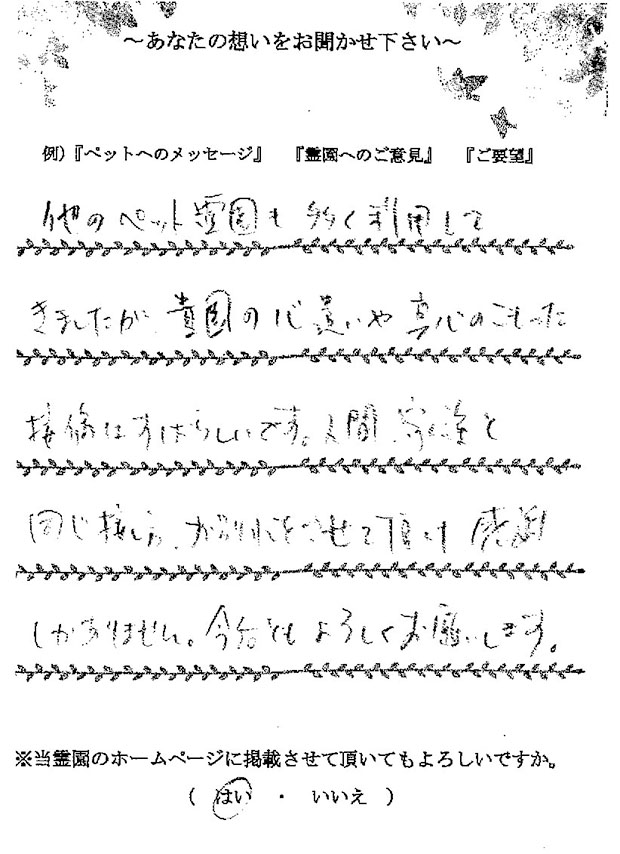 ～あなたの想いをお聞かせ下さい～
例)『ペットへのメッセージ』 『霊園へのご意見』 『ご要望』
他のペット霊園も多く利用して
きましたが、貴園の心遣いや真心のこもった
接偶はすばらしいです。人間家族と
同じ接し方、お別れをさせて頂け感謝
しかありません。今後ともよろしくお願いします。
※当霊園のホームページに掲載させて頂いてもよろしいですか。
( はい ・ いいえ )